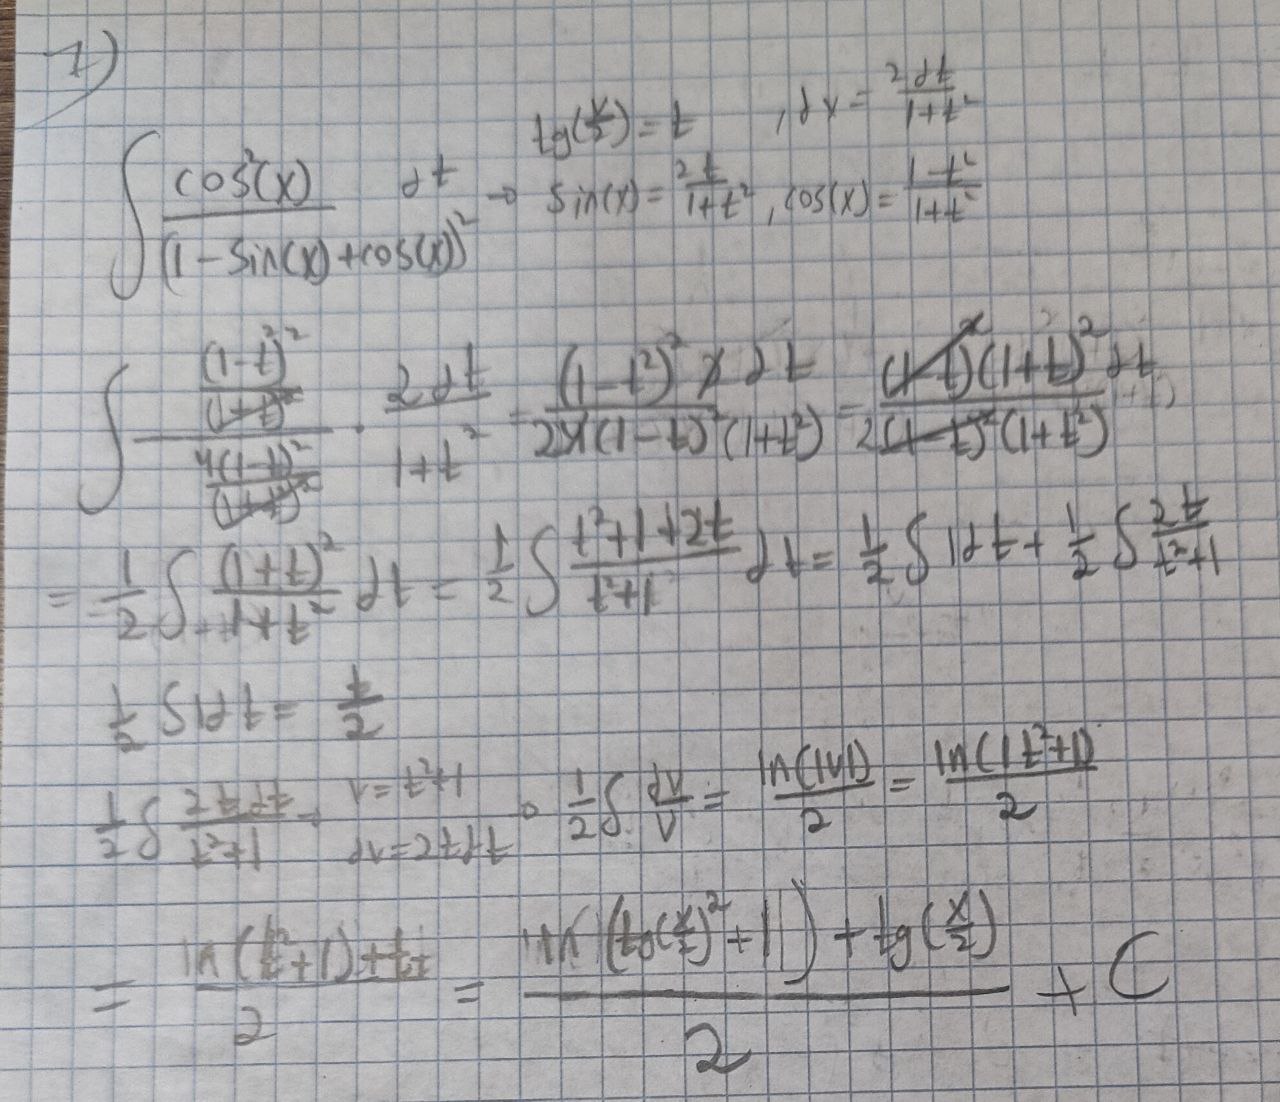 1)
tg(x/2) = t , dx = 2dt/(1+t²)
∫ cos²(x)/(1-sin(x)+cos(x))² dt → sin(x) = 2t/(1+t²), cos(x) = (1-t²)/(1+t²)
∫ ((1-t²)²/(1+t²)²)/(4(1-t)²/(1+t²)²) · 2dt/(1+t²) = (1-t²)² 2dt/(2 4(1-t)²(1+t²)) = (1-t)²(1+t)² dt/(2(1-t)²(1+t²))
= 1/2 ∫ (1+t)²/(1+t²) dt = 1/2 ∫ (t²+1+2t)/(t²+1) dt = 1/2 ∫ 1dt + 1/2 ∫ 2t/(t²+1)
1/2 ∫ 1dt = t/2
1/2 ∫ 2tdt/(t²+1) v=t²+1 dv=2tdt → 1/2 ∫ dv/v = ln(|v|)/2 = ln(|t²+1|)/2
= (ln(t²+1)+t)/2 = (ln(|tg(x/2)²+1|)+tg(x/2))/2 + C